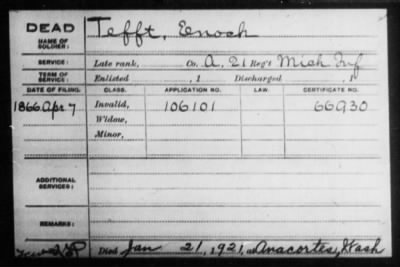 DEAD
NAME OF SOLDIER: Tefft, Enoch
SERVICE: Late rank, Co. A, 21 Reg't Mich Inf
TERM OF SERVICE: Enlisted , 1 Discharged , 1
DATE OF FILING. CLASS. APPLICATION NO. LAW. CERTIFICATE NO.
1866 Apr 7 Invalid, 106101 66930
Widow,
Minor,
ADDITIONAL SERVICES:
REMARKS:
Died Jan 21, 1921, at Anacortes, Wash